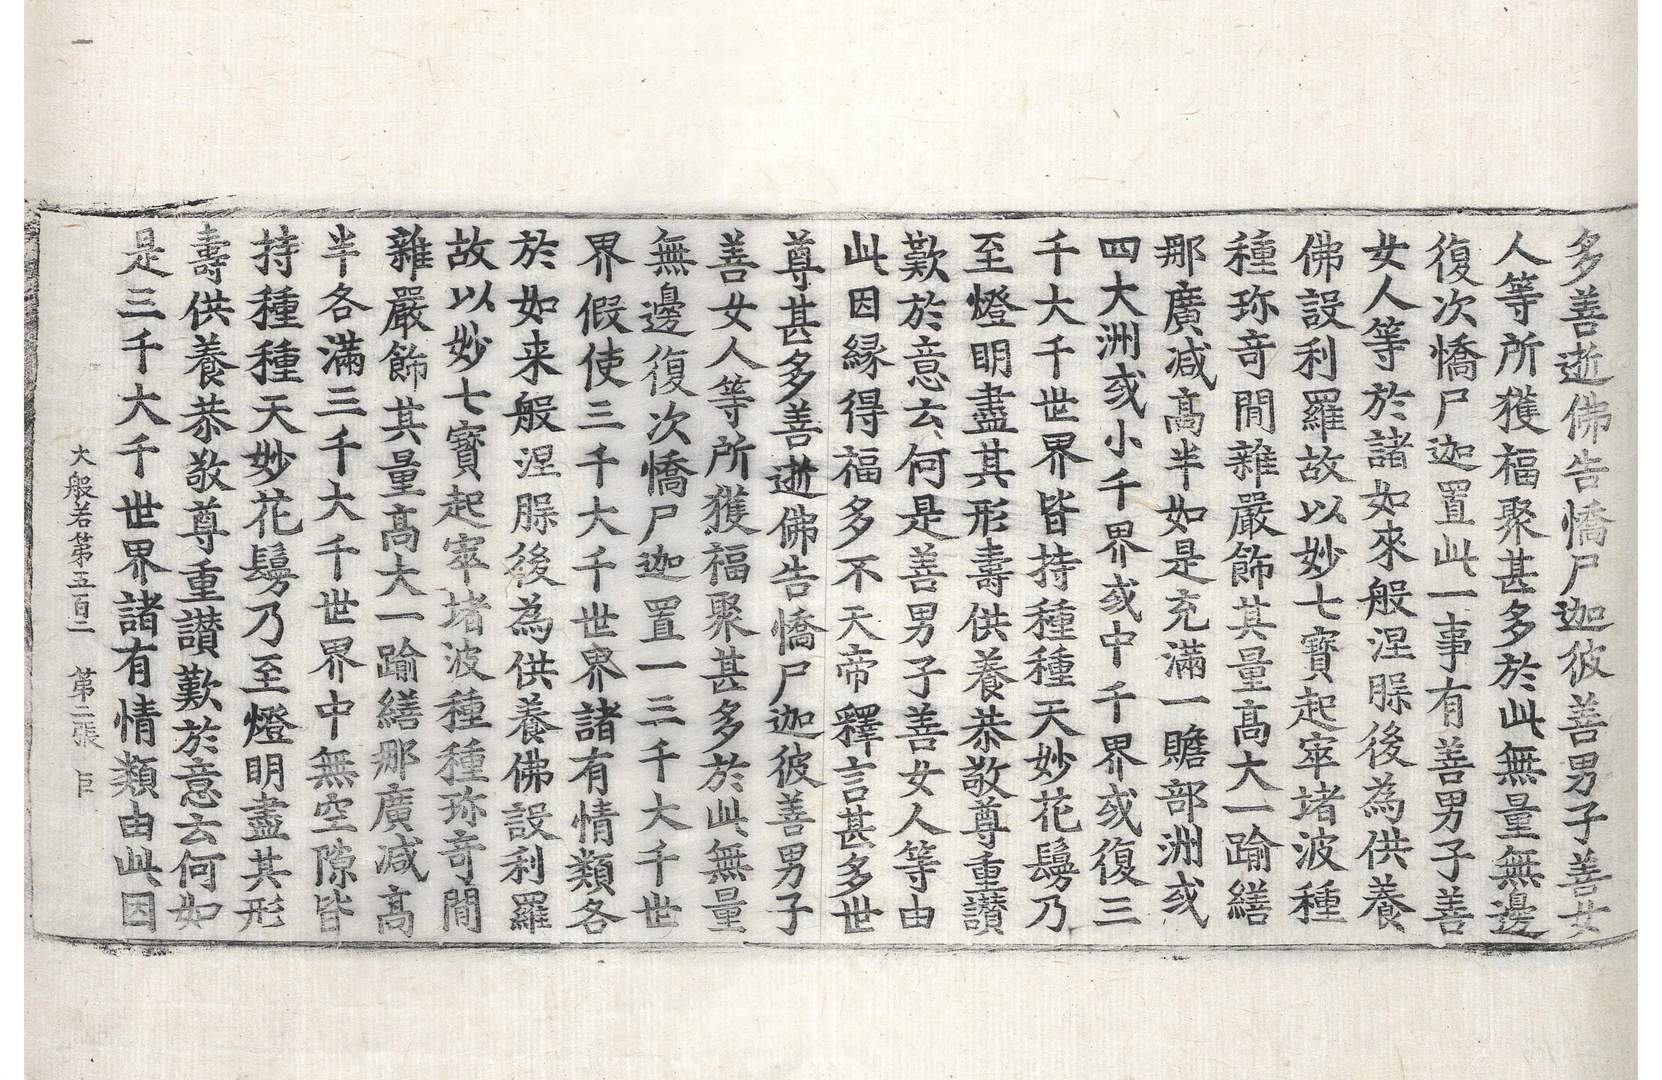 多善逝佛告憍尸迦彼善男子善女
人等所獲福聚甚多於此無量無邊
復次憍尸迦置此一事有善男子善
女人等於諸如來般涅脲後為供養
佛設利羅故以妙七寶起窣堵波種
種珎竒閒雜嚴飾其量髙大一踰繕
那廣减髙半如是充滿一贍部洲或
四大洲或小千界或中千界或復三
千大千世界皆持種種天妙花鬘乃
至燈明盡其形壽供養恭敬尊重讃
歎於意云何是善男子善女人等由
此因縁得福多不天帝釋言甚多世
尊甚多善逝佛告憍尸迦彼善男子
善女人等所獲福聚甚多於此無量
無邊復次憍尸迦置一三千大千世
界假使三千大千世界諸有情類各
於如来般涅脲後為供養佛設利羅
故以妙七寶起窣堵波種種珎竒閒
雜嚴飾其量髙大一踰繕那廣减髙
半各滿三千大千世界中無空隙皆
持種種天妙花鬘乃至燈明盡其形
壽供養恭敬尊重讃歎於意云何如
是三千大千世界諸有情類由此因
大般若第五百二 第二張 㠪